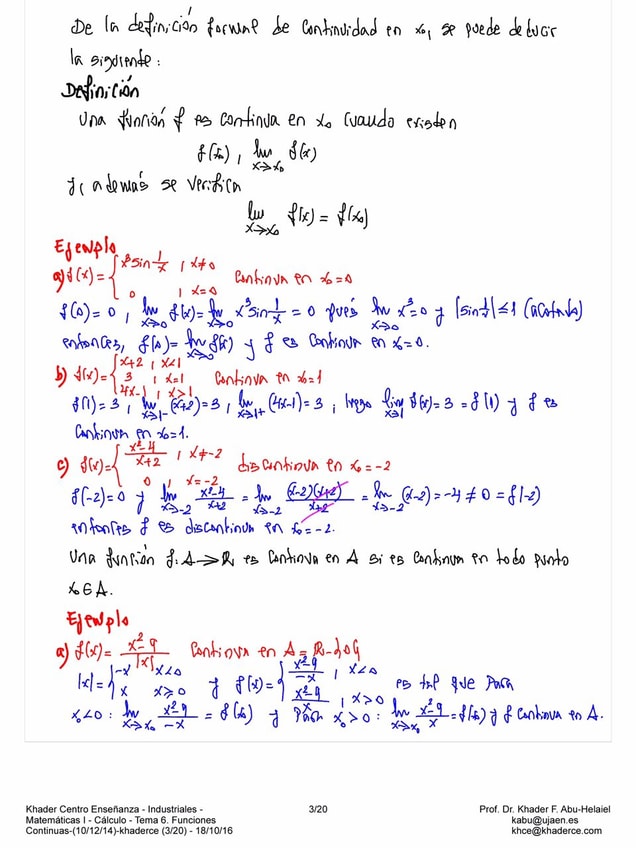 De la definición formal de continuidad en x₀, se puede deducir
la siguiente:
Definición
Una función f es continua en x₀ cuando existen
f(x₀), lim_{x→x₀} f(x)
y, además se verifica
lim_{x→x₀} f(x) = f(x₀)
Ejemplo
a) f(x) = { x³ sin 1/x , x≠0
0 , x=0 continua en x₀=0
f(0)=0, lim_{x→0} f(x) = lim_{x→0} x³ sin 1/x = 0 pués lim_{x→0} x³=0 y |sin 1/x| ≤ 1 (acotada)
entonces, f(0) = lim_{x→0} f(x) y f es continua en x₀=0.
b) f(x) = { x+2 , x<1
3 , x=1 continua en x₀=1
4x-1 , x>1
f(1)=3, lim_{x→1-} (x+2)=3, lim_{x→1+} (4x-1)=3, luego lim_{x→1} f(x)=3=f(1) y f es
continua en x₀=1.
c) f(x) = { x²-4/x+2 , x≠-2
0 , x=-2 discontinua en x₀=-2
f(-2)=0 y lim_{x→-2} x²-4/x+2 = lim_{x→-2} (x-2)(x+2)/x+2 = lim_{x→-2} (x-2) = -4 ≠ 0 = f(-2)
entonces f es discontinua en x₀=-2.
Una función f: A→ℝ es continua en A si es continua en todo punto
x₀∈A.
Ejemplo
a) f(x) = x²-9/|x| continua en A = ℝ-{0}
|x| = { -x x<0
x x≥0 y f(x) = { x²-9/-x , x<0
x²-9/x , x>0 es tal que para
x₀<0: lim_{x→x₀} x²-9/-x = f(x₀) y para x₀>0: lim_{x→x₀} x²-9/x = f(x₀) y f continua en A.
Khader Centro Enseñanza - Industriales -
Matemáticas I - Cálculo - Tema 6. Funciones
Continuas-(10/12/14)-khaderce (3/20) - 18/10/16
3/20
Prof. Dr. Khader F. Abu-Helaiel
kabu@ujaen.es
khce@khaderce.com